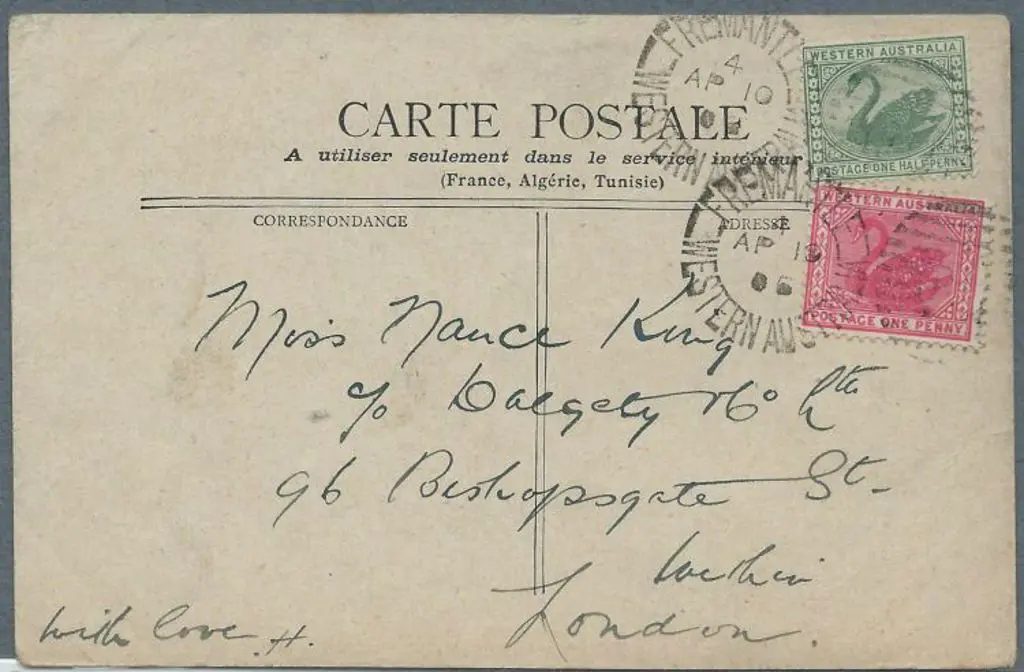 WESTERN AUSTRALIA
POSTAGE ONE HALFPENNY
FREMANTLE
4
AP 10
WESTERN AUSTRALIA
CARTE POSTALE
A utiliser seulement dans le service intérieur
(France, Algérie, Tunisie)
WESTERN AUSTRALIA
POSTAGE ONE PENNY
FREMANTLE
4
AP 10
06
WESTERN AUSTRALIA
CORRESPONDANCE
ADRESSE
Miss Nance King
c/o Dalgety & Co Ltd
96 Bishopsgate St-
Within
London.
With love H.